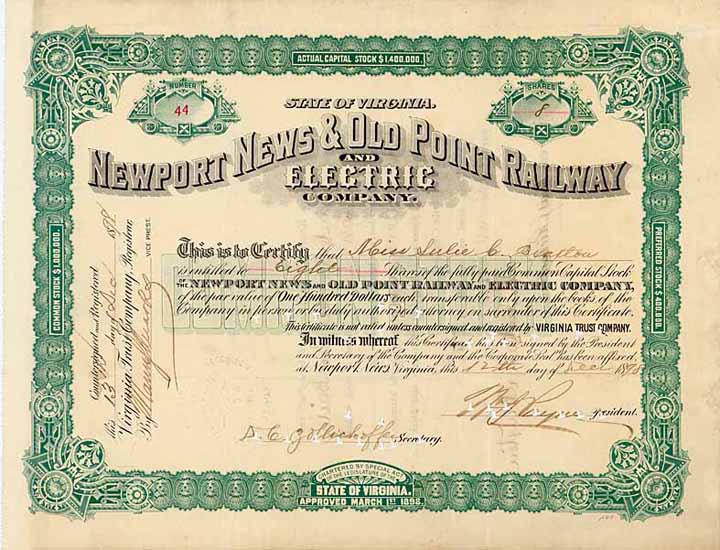 ACTUAL CAPITAL STOCK $1,400,000.
NUMBER
44
SHARES
8
STATE OF VIRGINIA.
NEWPORT NEWS & OLD POINT RAILWAY
AND
ELECTRIC
COMPANY.
This is to Certify that Miss Julie C.
is entitled to Eight Shares of the fully paid Common Capital Stock
OF THE NEWPORT NEWS AND OLD POINT RAILWAY AND ELECTRIC COMPANY,
of the par value of One Hundred Dollars each, transferable only upon the books of the
Company in person or by duly authorized attorney on surrender of this Certificate.
This Certificate is not valid unless countersigned and registered by VIRGINIA TRUST COMPANY.
In witness whereof this Certificate has been signed by the President
and Secretary of the Company and the Corporate Seal has been affixed
at Newport News Virginia, this 12th day of Dec 1898
President.
Secretary.
Countersigned and Registered
this 13 day of Dec 1898
Virginia Trust Company, Registrar,
By
VICE PREST.
COMMON STOCK $1,000,000.
PREFERRED STOCK $400,000.
CHARTERED BY SPECIAL ACT
OF THE LEGISLATURE OF THE
STATE OF VIRGINIA.
APPROVED MARCH 1ST 1898.